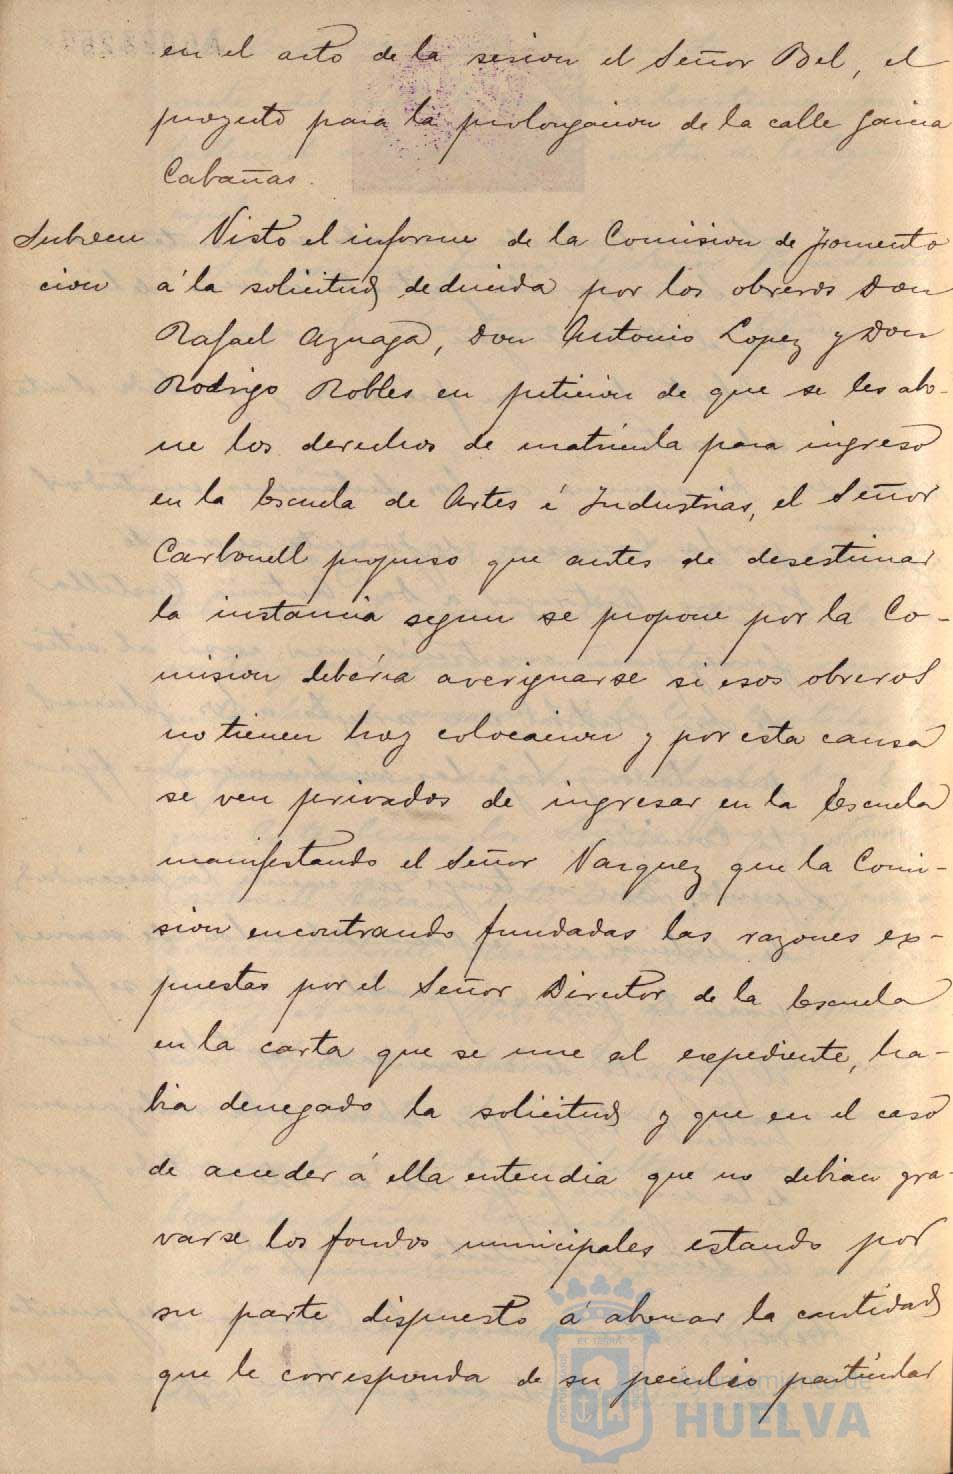 en el acto de la sesion el Señor Bel, el
proyecto para la prolongacion de la calle Garcia
Cabañas.
Subven
cion
Visto el informe de la Comision de Fomento
á la solicitud deducida por los obreros Don
Rafael Azuaga, Don Antonio Lopez y Don
Rodrigo Robles en peticion de que se les abo-
ne los derechos de matrícula para ingreso
en la Escuela de Artes é Industrias, el Señor
Carbonell propuso que antes de desestimar
la instancia segun se propone por la Co-
mision debería averiguarse si esos obreros
no tienen hoy colocacion y por esta causa
se ven privados de ingresar en la Escuela
manifestando el Señor Vazquez que la Comi-
sion encontrando fundadas las razones ex-
puestas por el Señor Director de la Escuela
en la carta que se une al expediente, ha-
bia denegado la solicitud y que en el caso
de acceder á ella entendia que no debian gra-
varse los fondos municipales estando por
su parte dispuesto á abonar la cantidad
que le corresponda de su peculio particular
HUELVA